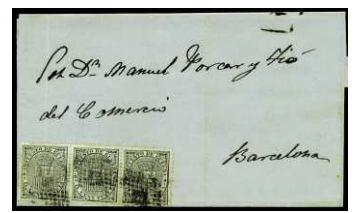 Manuel Porcar y Tió
del Comercio
Barcelona